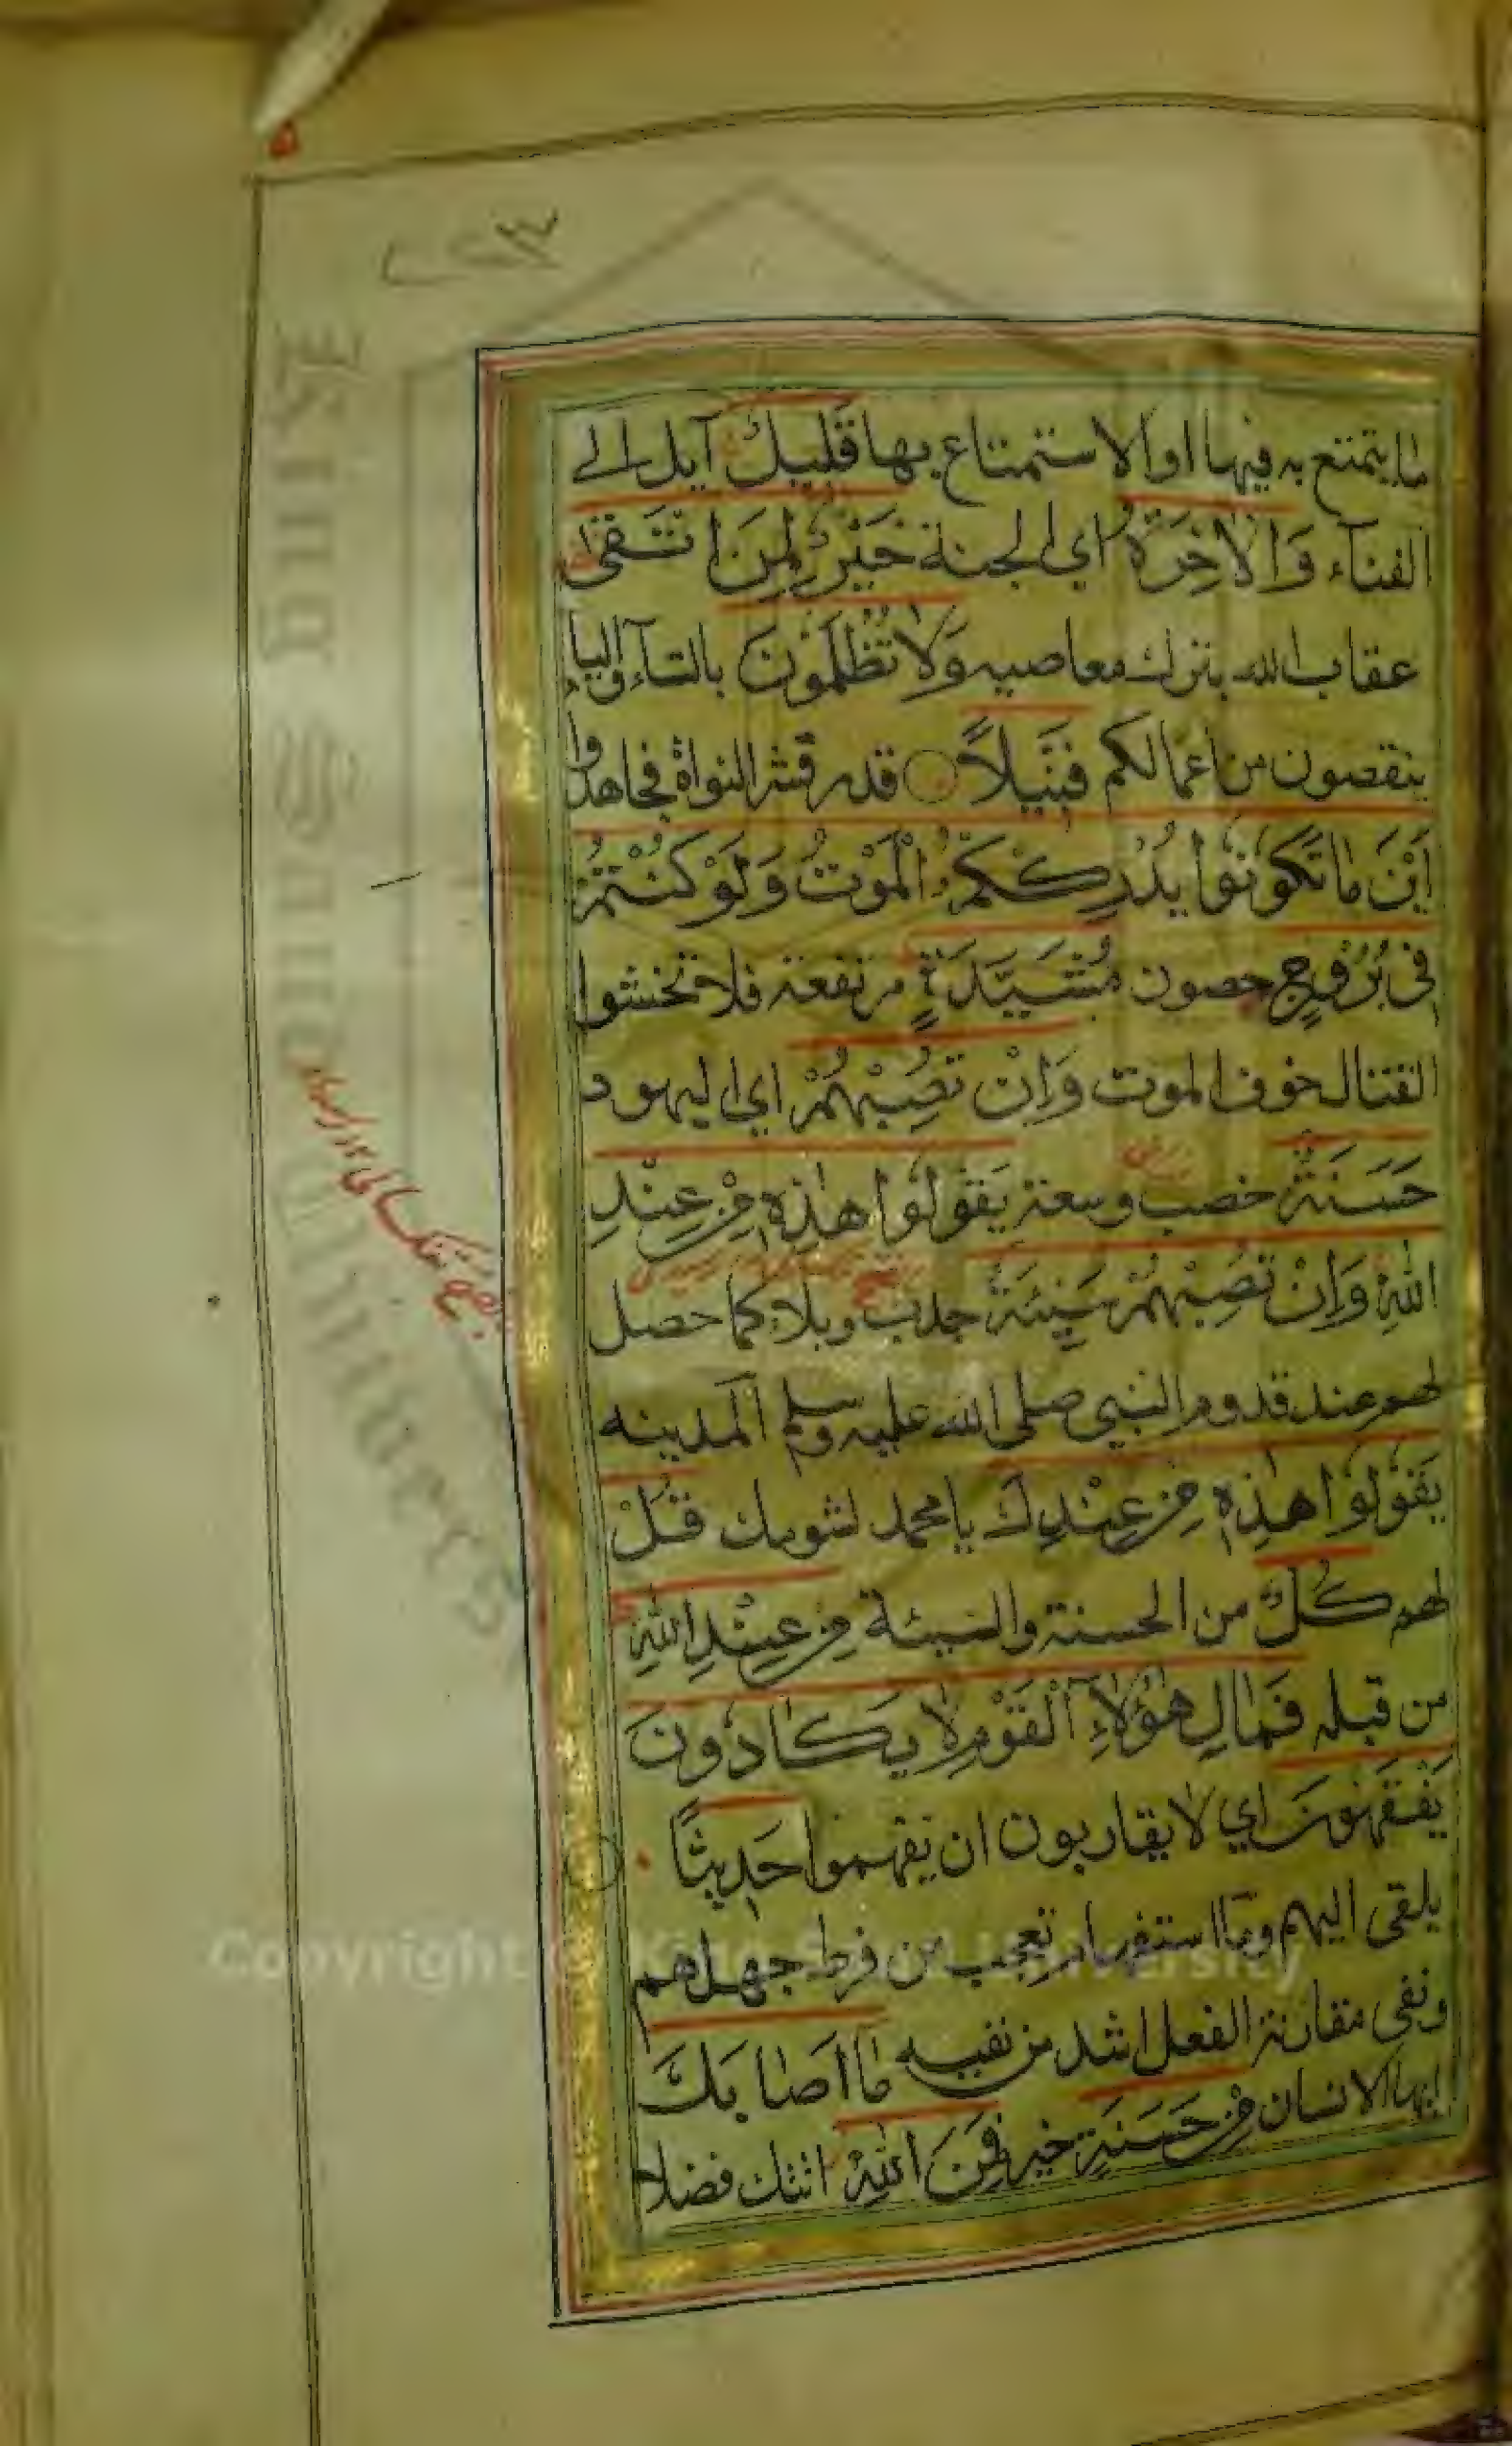 ما يتمتع به فيها او الاستمتاع بها قَلِيلٌ آيل الى
الفناء وَالْاٰخِرَةُ اي الجنة خَيْرٌ لِمَنِ اتَّقٰى
عقاب الله بترك معاصيه وَلَا تُظْلَمُونَ بالتاء والياء
ينقصون من اعمالكم فَتِيلًا قدر قشر النواة فجاهدوا
اَيْنَ مَا تَكُونُوا يُدْرِكْكُمُ الْمَوْتُ وَلَوْ كُنْتُمْ
فِي بُرُوجٍ حصون مُشَيَّدَةٍ مرتفعة فلا تخشوا
القتال خوف الموت وَاِنْ تُصِبْهُمْ اي اليهود
حَسَنَةٌ خصب وسعة يَقُولُوا هٰذِهِ مِنْ عِنْدِ
اللّٰهِ وَاِنْ تُصِبْهُمْ سَيِّئَةٌ جدب وبلاء كما حصل
لهم عند قدوم النبي صلى الله عليه وسلم المدينه
يَقُولُوا هٰذِهِ مِنْ عِنْدِكَ يا محمد لشومك قُلْ
لهم كُلٌّ من الحسنة والسيئة مِنْ عِنْدِ اللّٰهِ
من قبله فَمَالِ هٰؤُلَاءِ الْقَوْمِ لَا يَكَادُونَ
يَفْقَهُونَ اي لا يقاربون ان يفهموا حَدِيثًا
يلقى اليهم وما استفهام تعجب من فرط جهلهم
ونفي مقاربة الفعل اشد من نفيه مَا اَصَابَكَ
ايها الانسان مِنْ حَسَنَةٍ خير فَمِنَ اللّٰهِ اتتك فضلا
Copyright © King Saud University